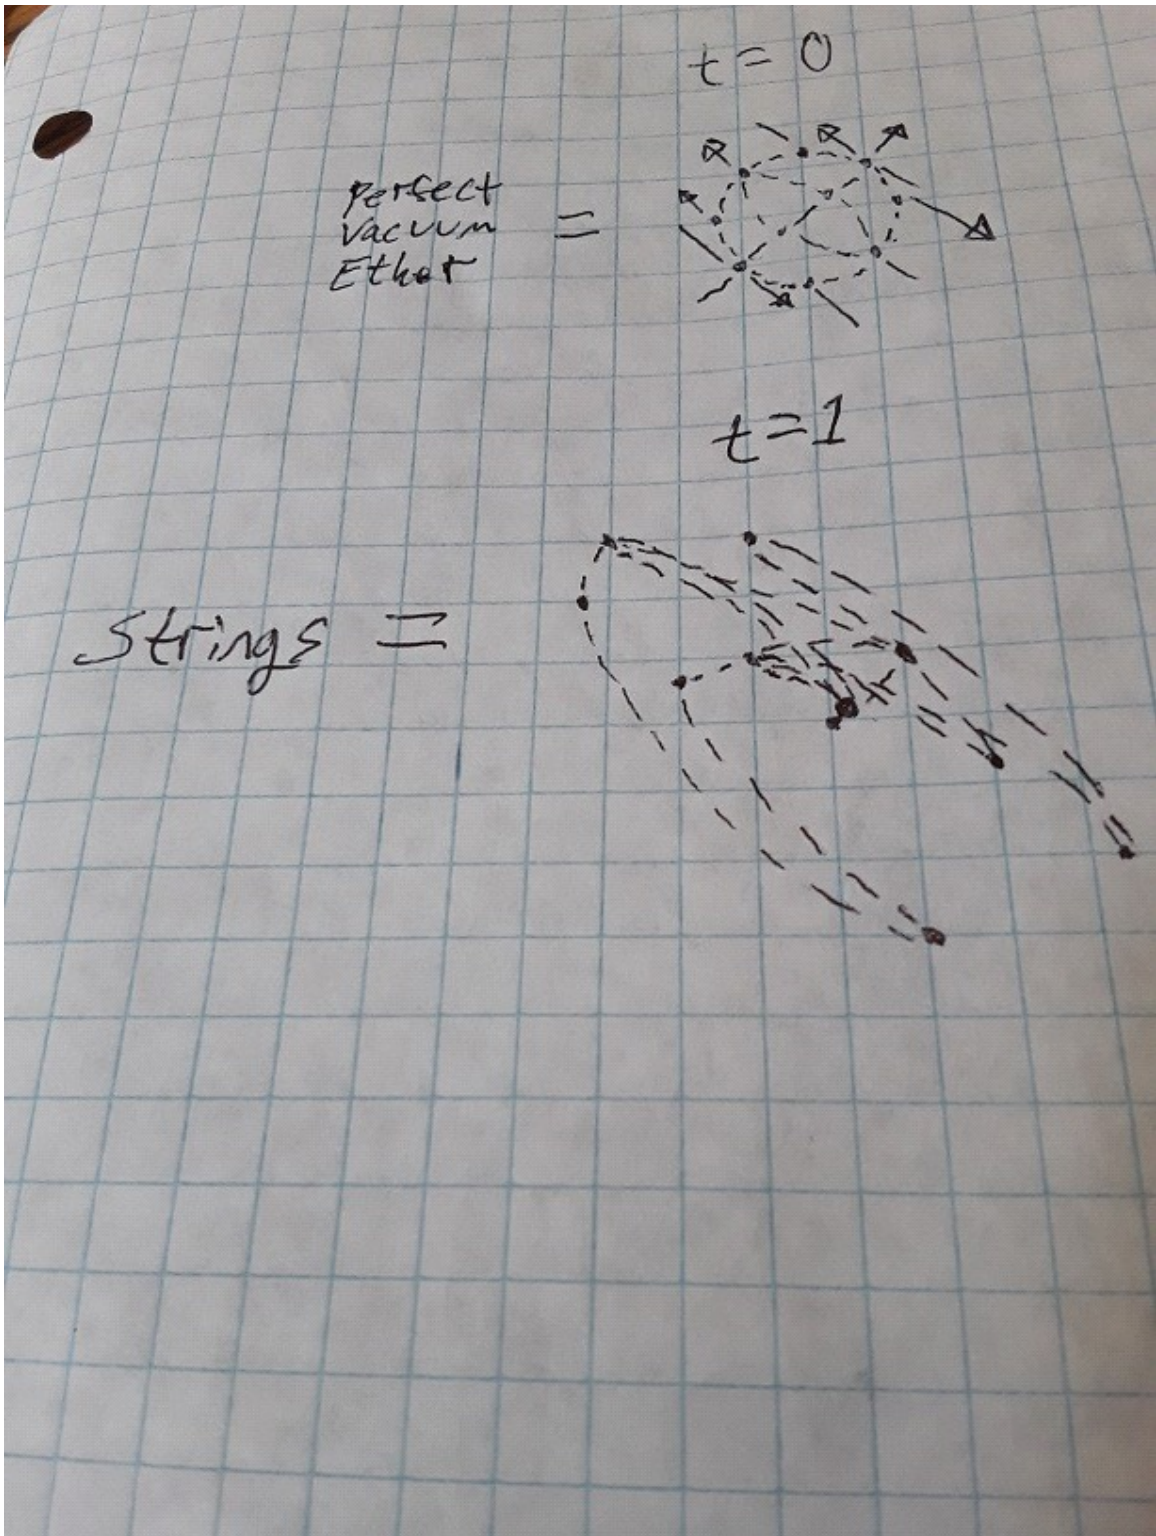 t = 0
perfect
vacuum =
Ether
t = 1
Strings =